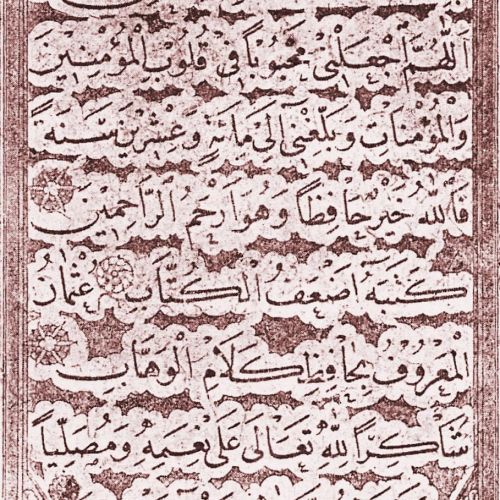 اَللّٰهُمَّ اجْعَلْنِى مَحْبُوبًا فِى قُلُوبِ الْمُؤْمِنِينَ
وَالْمُؤْمِنَاتِ وَبَلِّغْنِى اِلَى مِائَةٍ وَعِشْرِينَ سَنَةً
فَاللّٰهُ خَيْرٌ حَافِظًا وَهُوَ اَرْحَمُ الرَّاحِمِينَ
كَتَبَهُ اَضْعَفُ الْكُتَّابِ عُثْمَانُ
الْمَعْرُوفُ بِحَافِظِ كَلَامِ الْوَهَّابِ
شَاكِرًا لِلّٰهِ تَعَالَى عَلَى نِعَمِهِ وَمُصَلِّيًا